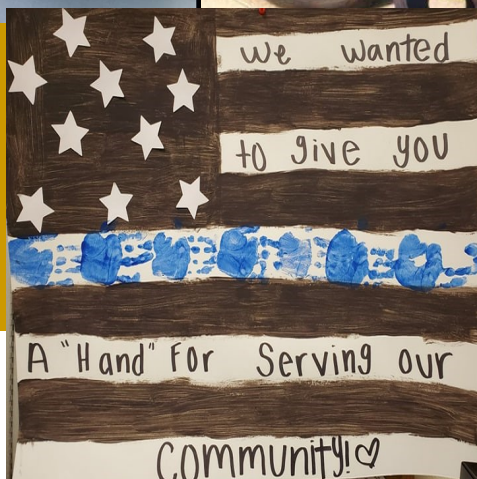 We wanted
to give you
A "Hand" For Serving our
Community!♡